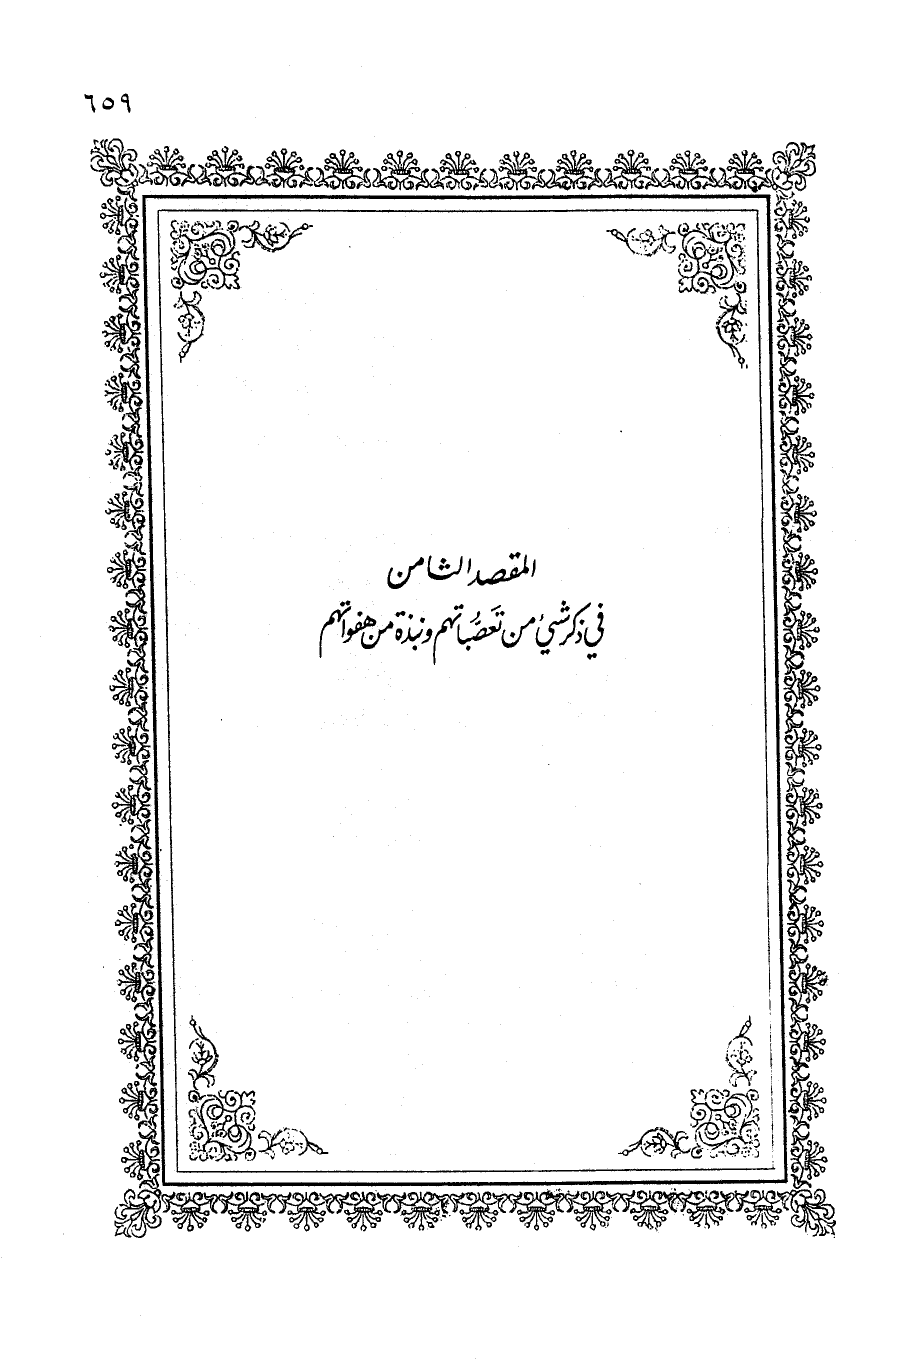 ٦٥٩
المقصد الثامن
في ذكر شيءٍ من تعصُّباتهم ونبذة من هفواتهم